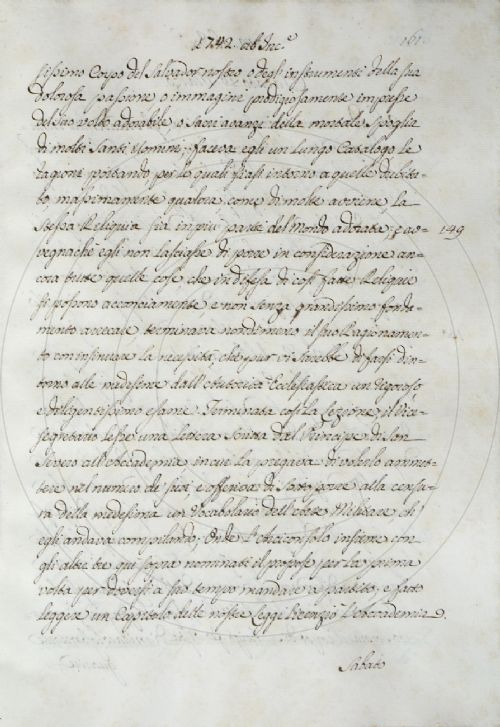 1742. ab Inc.e 161.
tissimo Corpo del Salvador nostro, o degli instrumenti della sua
dolorosa passione o immagini prodigiosamente impresse
del suo volto adorabile, o Sacri avanzi della mortale spoglia
di molti Santi Uomini; faceva egli un lungo Catalogo le
ragioni portando per le quali siasi intorno a quelle dubita-
to massimamente qualora, come di molte avviene, la
stessa Reliquia sia in più parte del Mondo adorata; e av- 149
vegnachè egli non lasciasse di porre in considerazione an-
cora tutte quelle cose che in difesa di così fatte Reliquie
si possono acconciamente e non senza grandissimo fonda-
mento arrecare terminava nondimeno il suo Ragionamen-
to con insinuare la necessità, che pur vi sarebbe di farsi d'in-
torno alle medesime dall'Autorità Ecclesiastica un rigoroso
e diligentissimo esame. Terminata così la Lezione, il Vice-
segretario lesse una Lettera scritta dal Principe di San
Severo all'Accademia in cui la pregava di volerlo ammet-
tere nel numero de suoi, e offeriva di sottoporre alla censu-
ra della medesima un Vocabolario dell'Arte Militare ch'
egli andava compilando; Onde l'Arciconsolo insieme con
gli altri tre qui sopra nominati il propose per la prima
volta per doversi a suo tempo mandare a partito, e fatto
leggere un Capitolo delle nostre Leggi licenziò l'Accademia.
Sabato